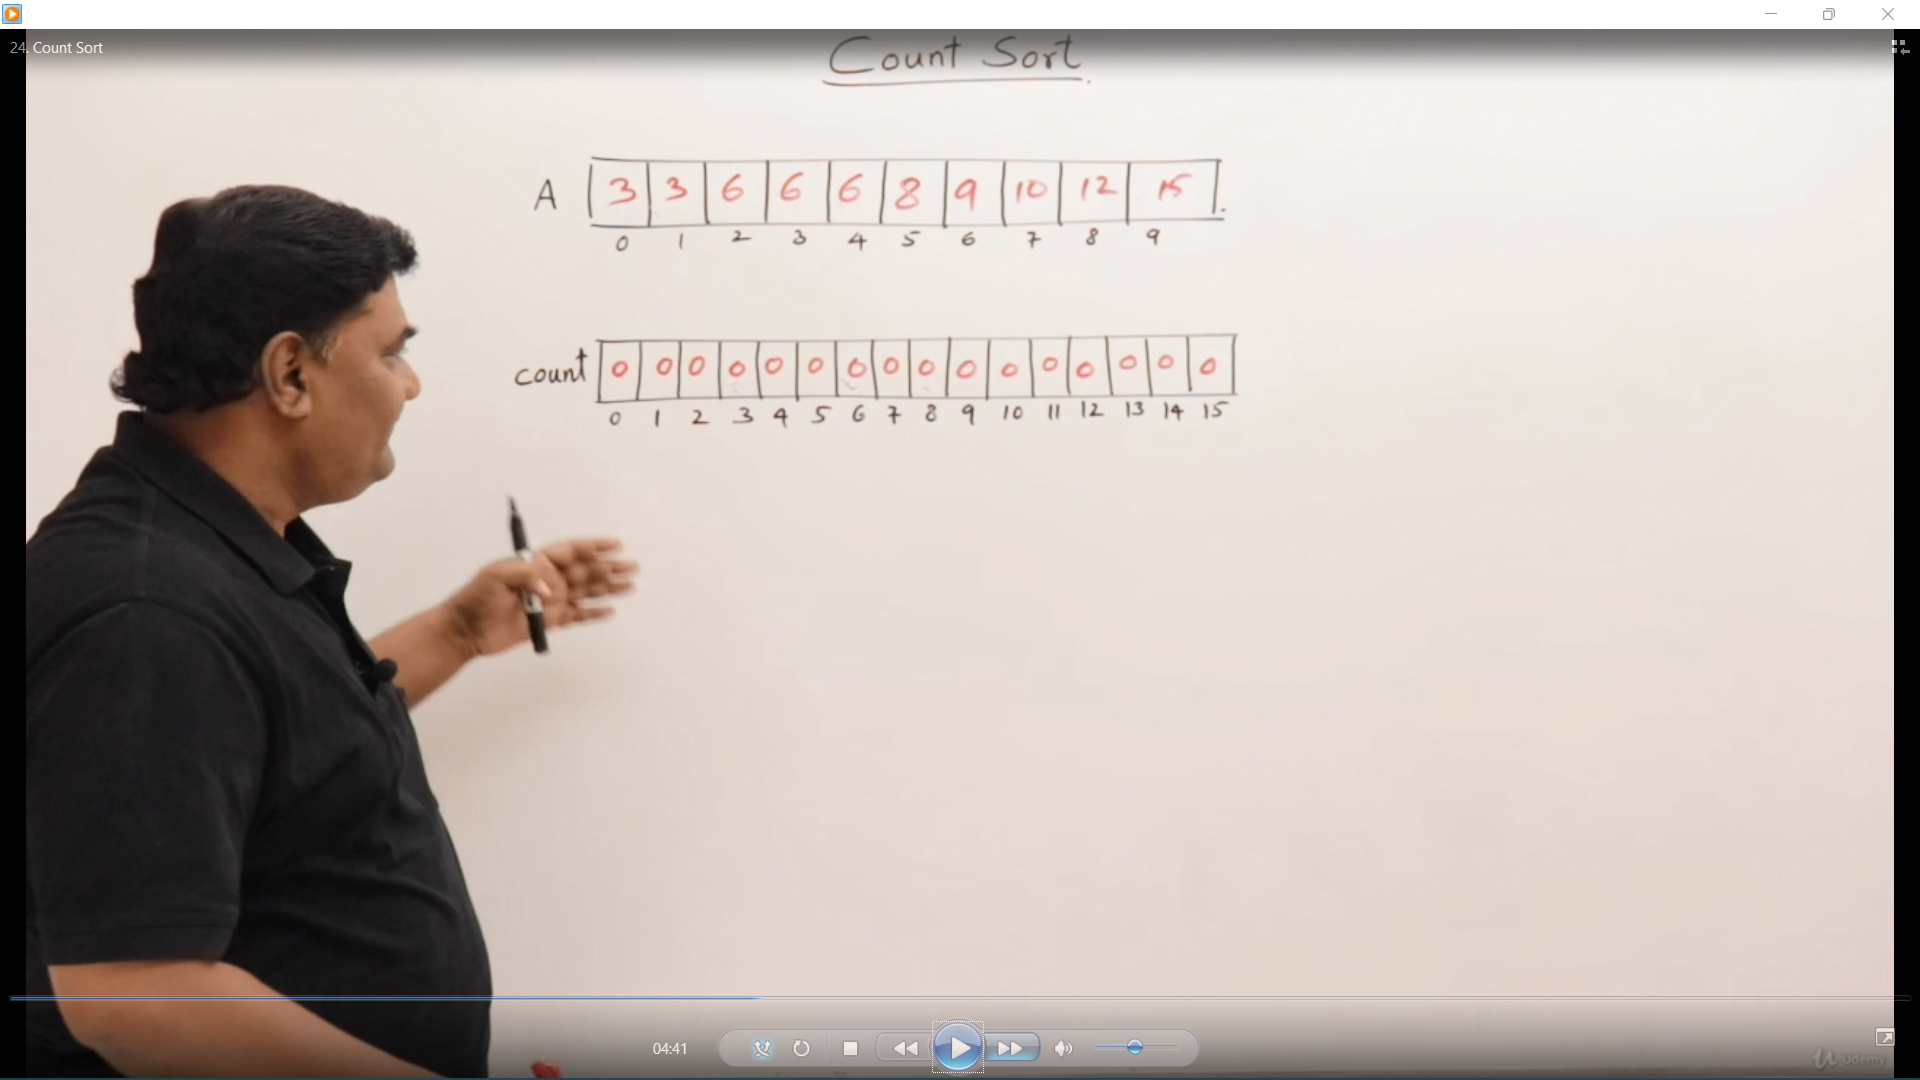 24. Count Sort
Count Sort
A 3 3 6 6 6 8 9 10 12 15
0 1 2 3 4 5 6 7 8 9
count 0 0 0 0 0 0 0 0 0 0 0 0 0 0 0 0
0 1 2 3 4 5 6 7 8 9 10 11 12 13 14 15
04:41
Udemy